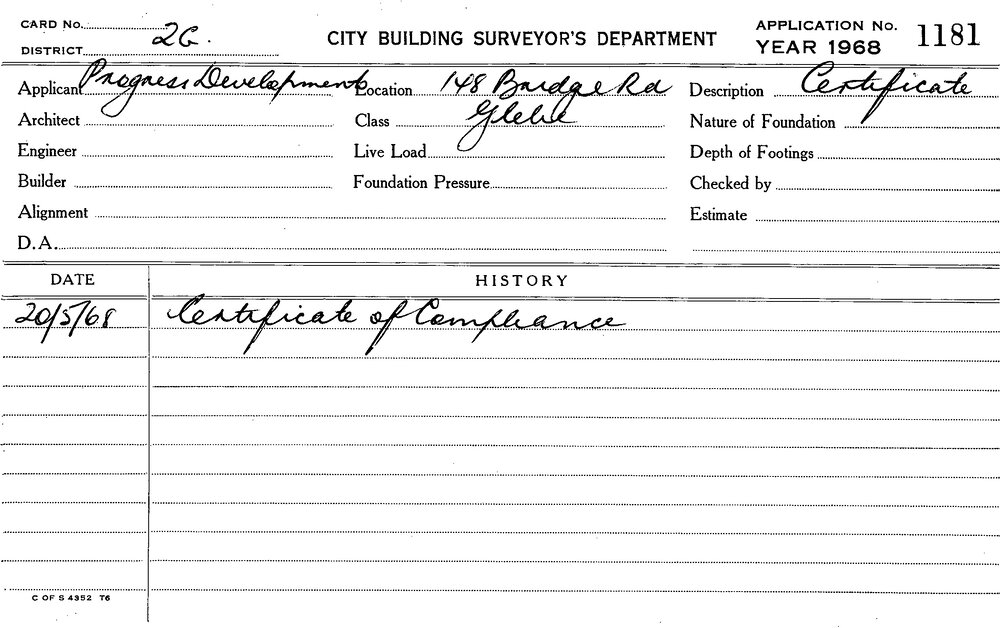 CARD No. CITY BUILDING SURVEYOR'S DEPARTMENT APPLICATION No. 1181
DISTRICT 2G. YEAR 1968
Applicant Progress Developments Location 148 Bridge Rd Description Certificate
Architect Class Glebe Nature of Foundation
Engineer Live Load Depth of Footings
Builder Foundation Pressure Checked by
Alignment Estimate
D.A.
DATE HISTORY
20/5/68 Certificate of Compliance
C OF S 4352 T6